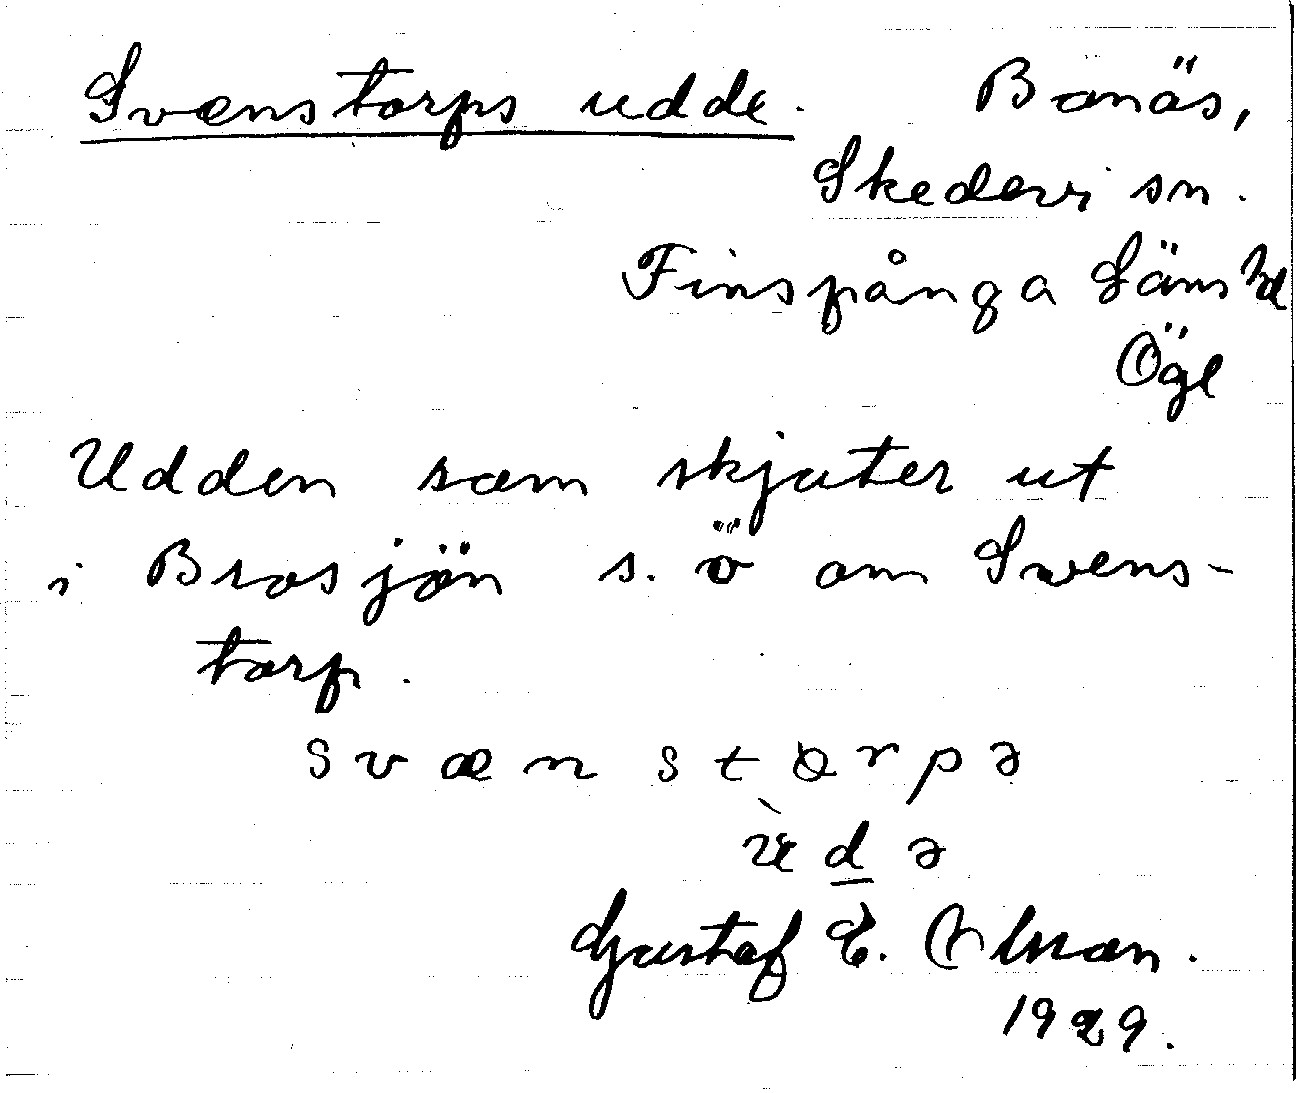 Svenstorps udde. Bonäs,
Skedevi sn.
Finspånga Läns hd
Ögl
Udden som skjuter ut
i Brosjön s.ö om Svens-
torp.
svænstɔrpə
ùdə
Gustaf E.
1929.